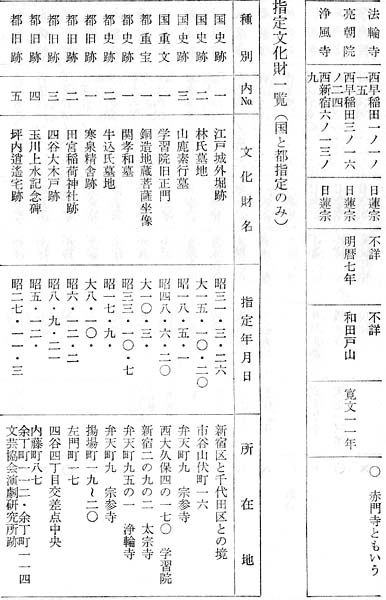 法輪寺 西早稲田一ノ一ノ一五 日蓮宗 不詳 不詳 ○赤門寺ともいう
亮朝院 西早稲田三ノ一六ノ二四 日蓮宗 明暦七年 和田戸山 寛文一一年
浄風寺 西新宿六ノ一三ノ九 日蓮宗
指定文化財一覧（国と都指定のみ）
種別 内No. 文化財名 指定年月日 所在地
国史跡 一 江戸城外堀跡 昭三一・三・二六 新宿区と千代田区との境
国史跡 二 林氏墓地 大一五・一〇・二〇 市谷山伏町一六
国史跡 三 山鹿素行墓 昭一八・五・一 弁天町九 宗参寺
国重文 一 学習院旧正門 昭四八・六・二〇 西大久保四の一七〇 学習院
都重宝 一 銅造地蔵菩薩坐像 大一〇・三・ 新宿二の九の二 太宗寺
都史跡 一 関孝和墓 昭三三・一〇・七 弁天町九五の一 浄輪寺
都史跡 二 牛込氏墓地 昭一七・九・ 弁天町九 宗参寺
都旧跡 一 寒泉精舎跡 大八・一〇・ 揚場町一九～二〇
都旧跡 二 田宮稲荷神社跡 昭六・一二・二 左門町一七
都旧跡 三 四谷大木戸跡 昭八・九・二一 四谷四丁目交差点中央
都旧跡 四 玉川上水記念碑 昭五・一二・ 内藤町八七
都旧跡 五 坪内逍遙宅跡 昭二七・一一・三 余丁町一一二・余丁町一一四
文芸協会演劇研究所跡